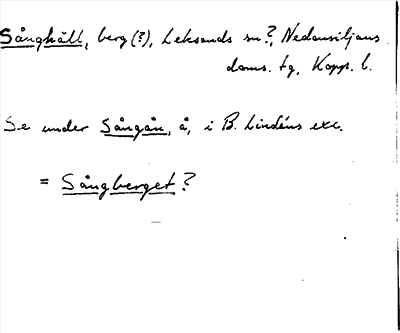 Sånghäll, berg (?), Leksands sn?, Nedansiljans
doms. tg, Kopp. l.
Se under Sångån, å, i B. Lindéns exc.
= Sångberget?